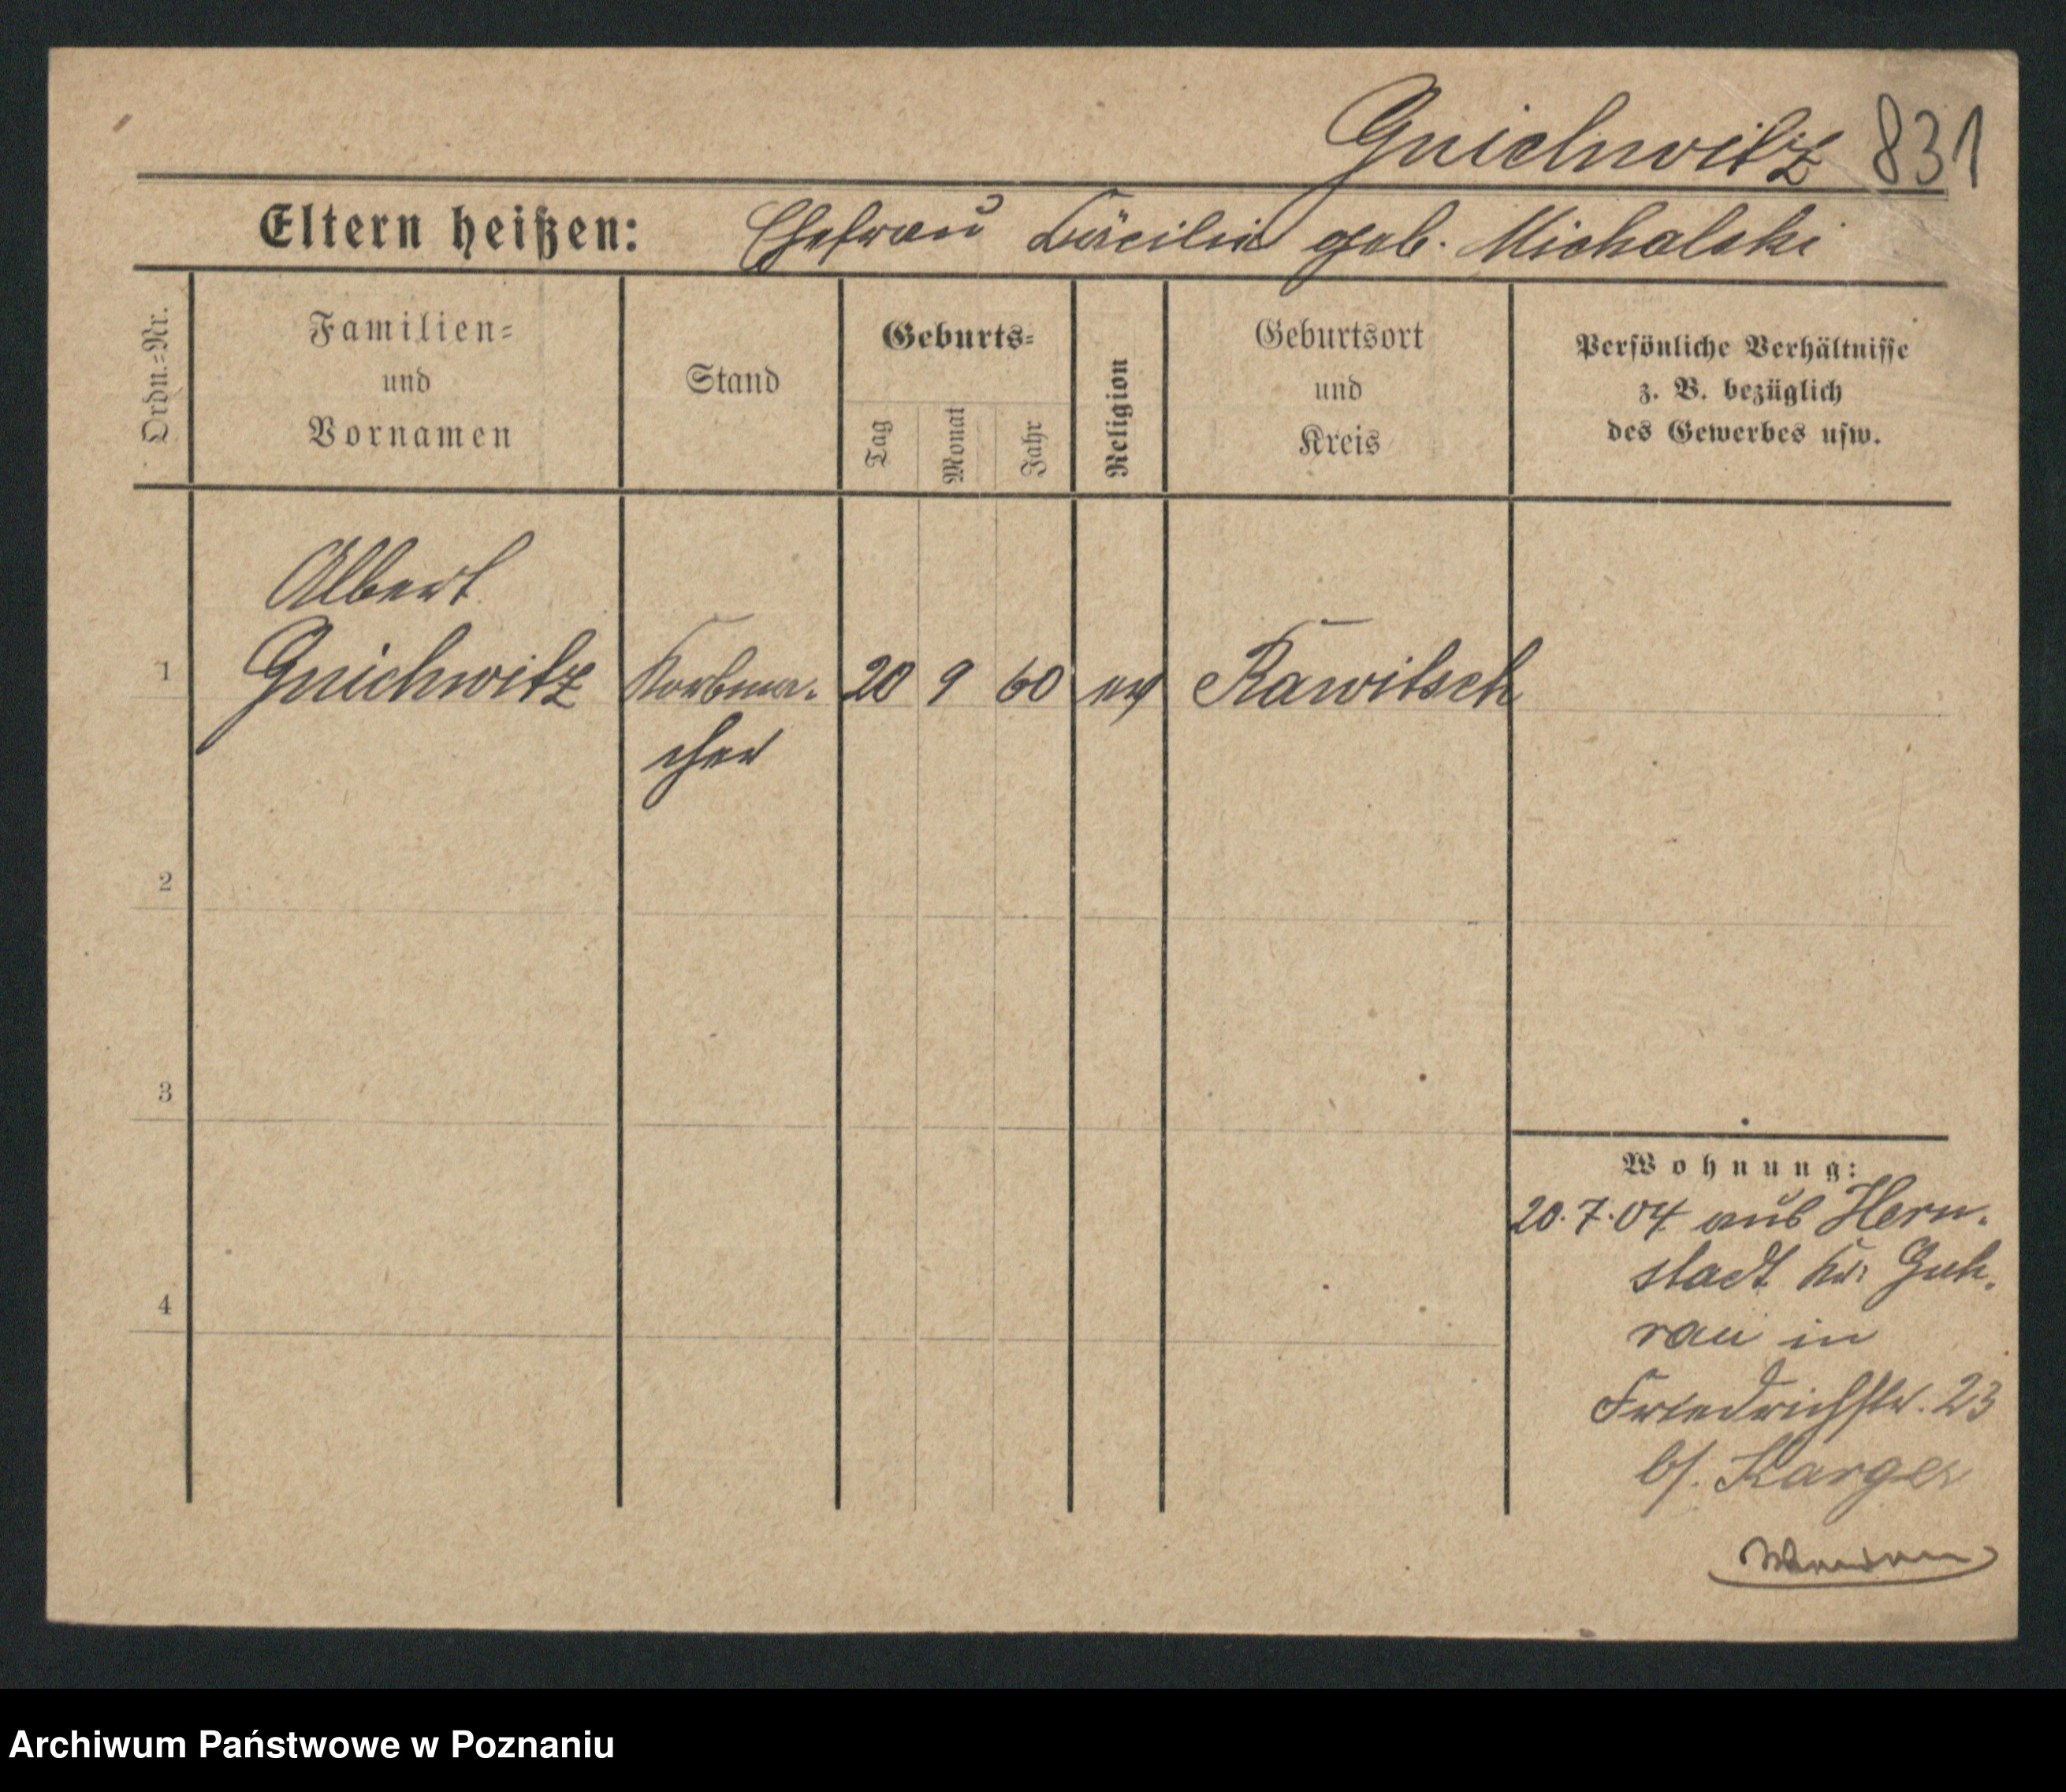 Gnichwitz 831
Eltern heißen: Ehefrau Cäcilie geb. Michalski
Ordn.=Nr.
Familien=
und
Vornamen
Stand
Geburts=
Tag
Monat
Jahr
Religion
Geburtsort
und
Kreis
Persönliche Verhältnisse
z. B. bezüglich
des Gewerbes usw.
Albert
1 Gnichwitz Korbma- 20 9 60 ev Rawitsch
cher
2
3
4
Wohnung:
20.7.04 aus Hern-
stadt Kr. Guh-
rau in
Friedrichstr. 23
b/. Karger
Archiwum Państwowe w Poznaniu